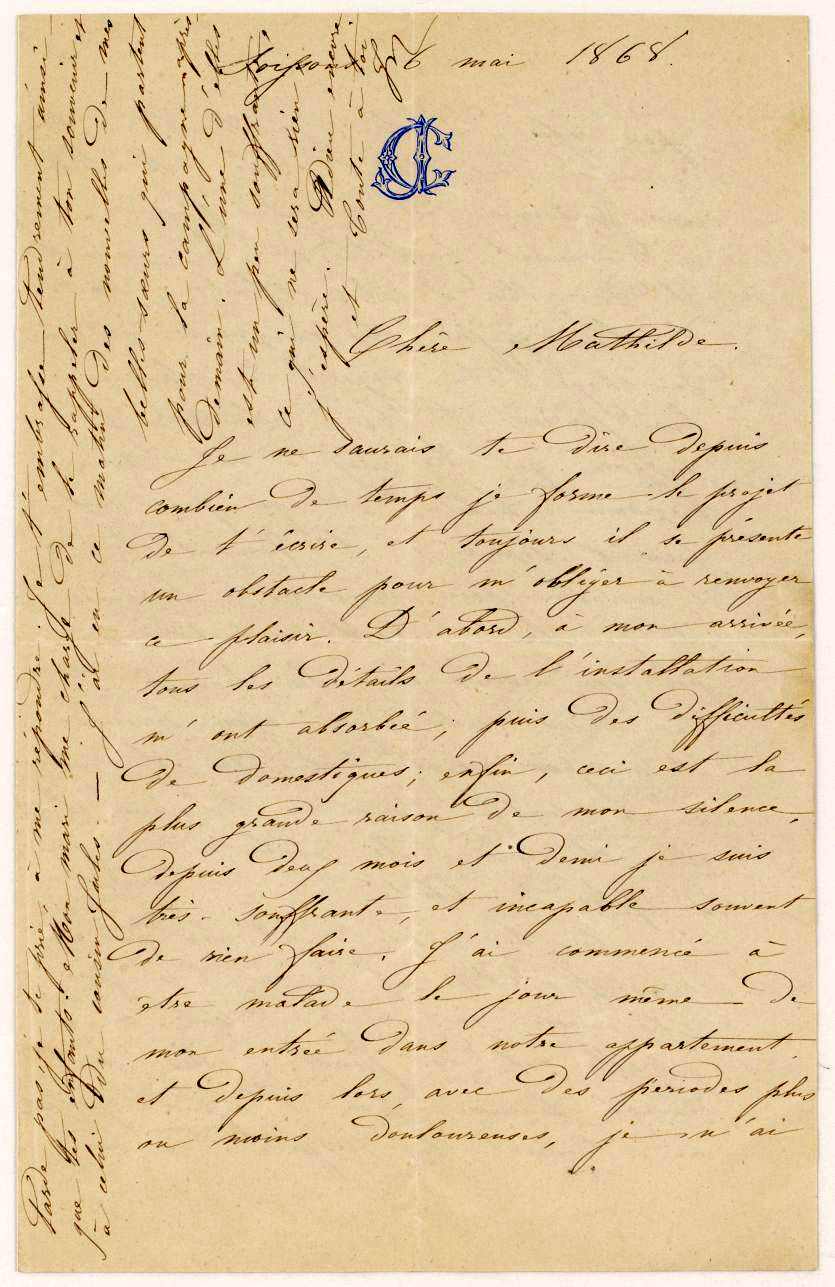 Soissons 26 mai 1868.
CJ
Chère Mathilde.
Je ne saurais te dire depuis
combien de temps je forme le projet
de t'écrire, et toujours il se présente
un obstacle pour m'obliger à renvoyer
ce plaisir. D'abord, à mon arrivée,
tous les détails de l'installation
m'ont absorbée; puis des difficultés
de domestiques; enfin, ceci est la
plus grande raison de mon silence,
depuis deux mois et demi je suis
très-souffrante, et incapable souvent
de rien faire. J'ai commencé à
être malade le jour même de
mon entrée dans notre appartement,
et depuis lors, avec des périodes plus
ou moins douloureuses, je n'ai
Tarde pas, je te prie, à me répondre. Je t'embrasse tendrement ainsi
que tes enfants. Mon mari me charge de le rappeler à ton souvenir et
à celui du cousin Jules. — J'ai eu ce matin des nouvelles de mes
belles-sœurs qui partent
pour la campagne après
demain. L'une d'elles
est un peu souffrante
ce qui ne sera rien
j'espère. Adieu encore
et toute à toi